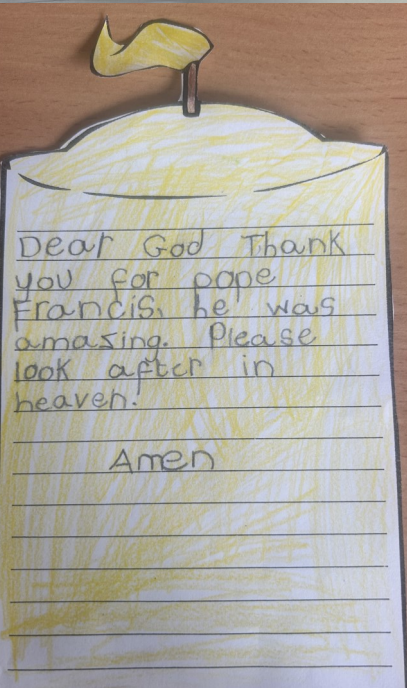 Dear God Thank
you for pope
Francis, he was
amazing. Please
look after in
heaven!
Amen